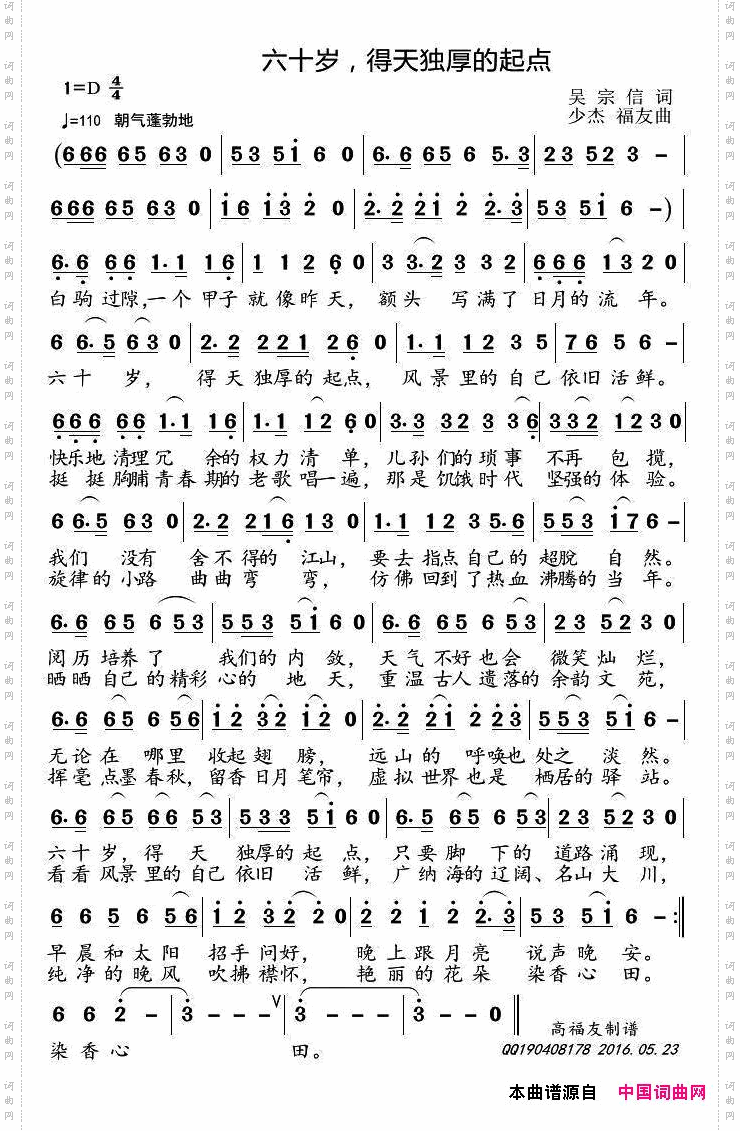 六十岁，得天独厚的起点
1=D 4/4
吴宗信词
♩=110 朝气蓬勃地
少杰 福友曲
(666 65 63 0 | 53 5i 6 0 | 6. 6 65 6 5. 3 | 23 52 3 - |
666 65 63 0 | i6 i3 2 0 | 2. 2 2i 2 2. 3 | 53 5i 6 - )
6. 6 66 1. 1 16 | 1 1 2 6 0 | 3 3. 2 3 3. 2 | 666 13 2 0
白驹过隙,一个甲子就像昨天，额头 写满了日月的流 年。
6 6. 5 63 0 | 2. 2 221 26 0 | 1. 1 12 3 5 | 76 56 5 0
六十 岁， 得天独厚的起点， 风景里的自己依旧活鲜。
666 66 1. 1 16 | 221 12 6 0 | 3. 3 32 3 36 | 332 12 3 0
快乐地清理冗 余的权力清单，儿孙们的琐事 不再 包揽，
挺挺胸脯青春期的老歌唱一遍，那是饥饿时代 坚强的体 验。
6 6. 5 63 0 | 2. 2 216 13 0 | 1. 1 12 3 5. 6 | 553 i7 6 0
我们 没有 舍不得的江山，要去指点自己的超脱 自然。
旋律的小路 曲曲弯 弯， 仿佛回到了热血沸腾的当年。
6. 6 65 6 53 | 553 5i 6 0 | 6. 6 65 6 5. 3 | 23 52 3 0
阅历培养了 我们的内 敛，天气不好也会 微笑灿烂，
晒晒自己的精彩心的 地天，重温古人遗落的余韵文苑，
6. 6 65 6 56 | i2 32 i2 0 | 2. 2 2i 2 23 | 553 5i 6 0
无论在 哪里 收起翅 膀， 远山的 呼唤也处之 淡然。
挥毫点墨春秋，留香日月笔帘，虚拟世界也是 栖居的驿站。
6. 6 65 66 53 | 533 5i 6 0 | 6. 5 65 6 53 | 23 52 3 0
六十岁，得 天 独厚的起 点，只要脚 下的道路涌现，
看看风景里的自己依旧 活鲜，广纳海的辽阔、名山大川，
6 6 5 6 56 | i2 32 2 0 | 2 2 i 2 2. 3 | 553 5i 6 - :‖
早晨和太阳 招手问好， 晚上跟月亮 说声晚 安。
纯净的晚风 吹拂襟怀， 艳丽的花朵 染香心 田。
6 6 2 - | 3 - - - V | 3 - - - | 3 - - 0 ‖
染香心 田。
高福友制谱
QQ190408178 2016.05.23
本曲谱源自 中国词曲网